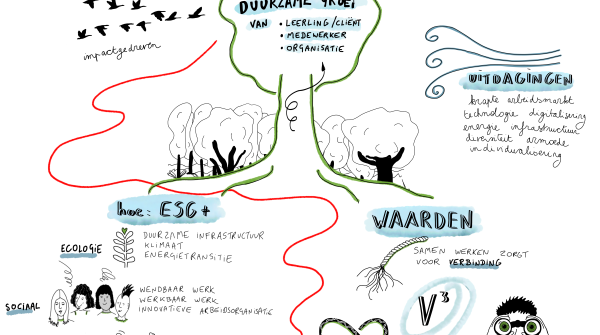 DUURZAME GROEI
VAN • LEERLING/CLIËNT
• MEDEWERKER
• ORGANISATIE
impactgedreven
UITDAGINGEN
krapte arbeidsmarkt
technologie digitalisering
energie infrastructuur
diversiteit armoede
individualisering
hoe: ESG+
DUURZAME INFRASTRUCTUUR
KLIMAAT
ENERGIETRANSITIE
ECOLOGIE
WENDBAAR WERK
WERKBAAR WERK
INNOVATIEVE ARBEIDSORGANISATIE
SOCIAAL
WAARDEN
SAMEN WERKEN ZORGT
VOOR VERBINDING
V³